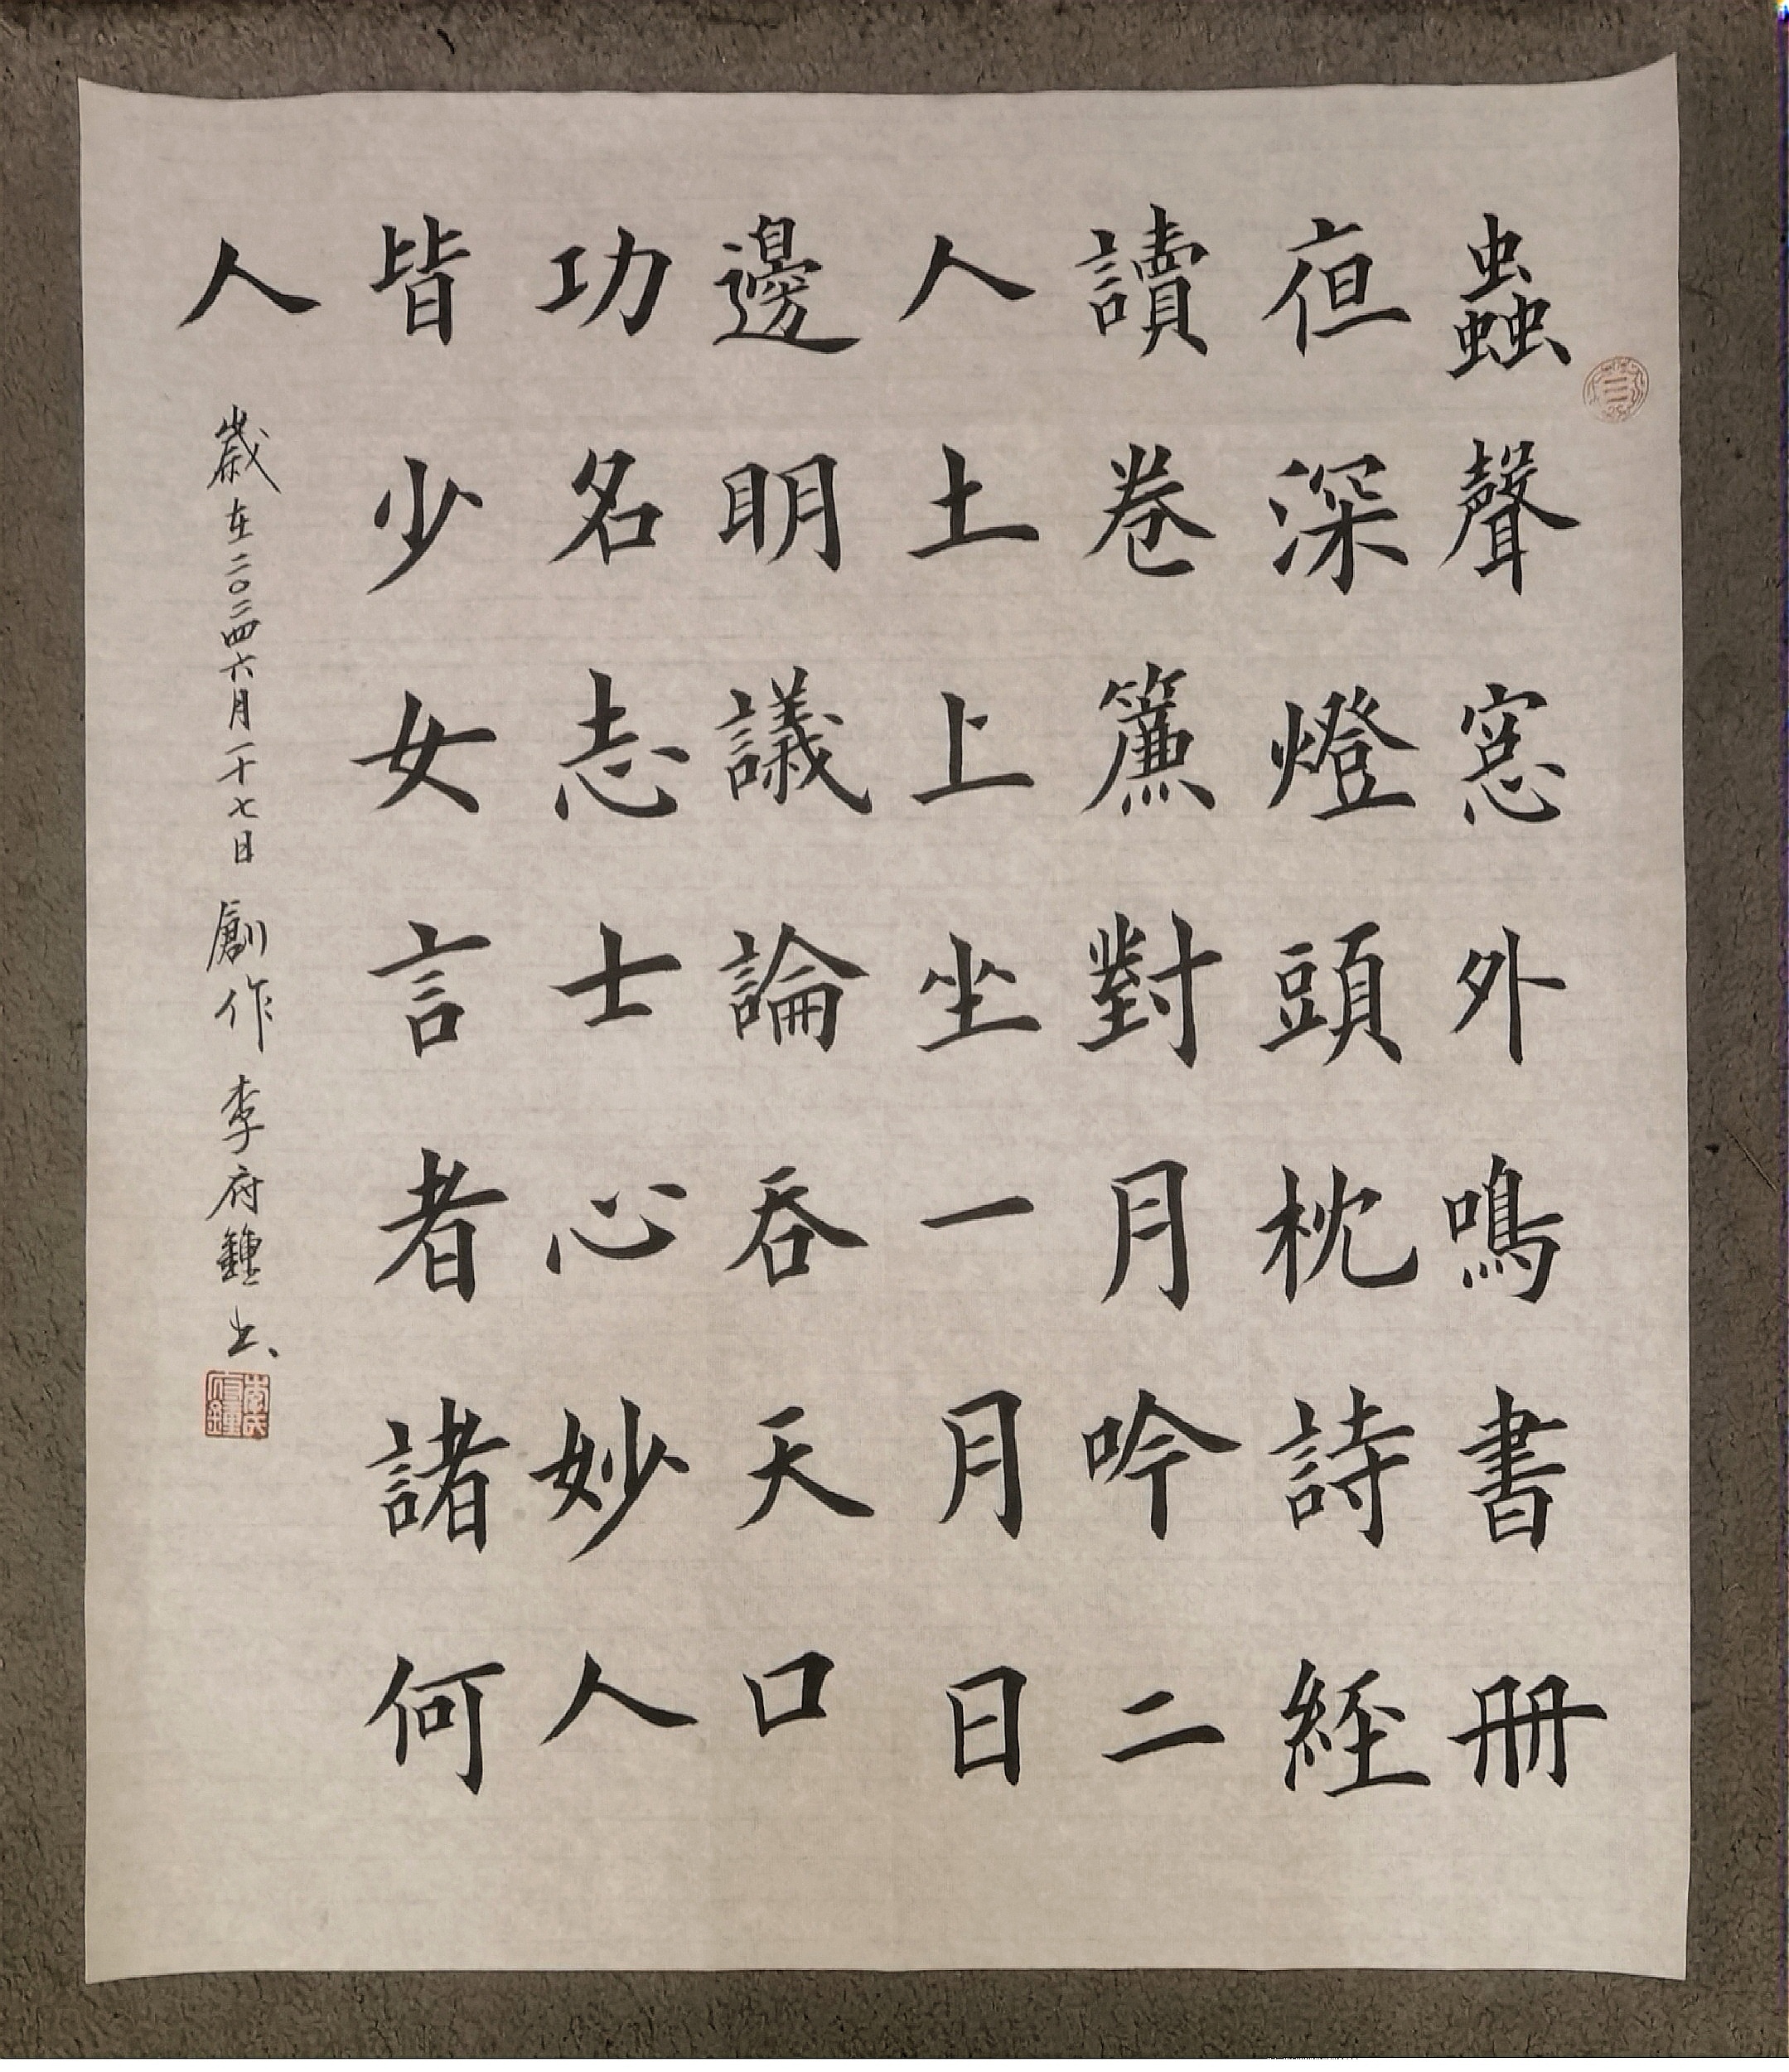 蟲聲窓外鳴書册
亱深燈頭枕詩經
讀卷簾對月吟二
人土上坐一月日
邊明議論吞天口
功名志士心妙人
皆少女言者諸何
人
歲在二〇二四六月一十七日 創作 李府鍾书